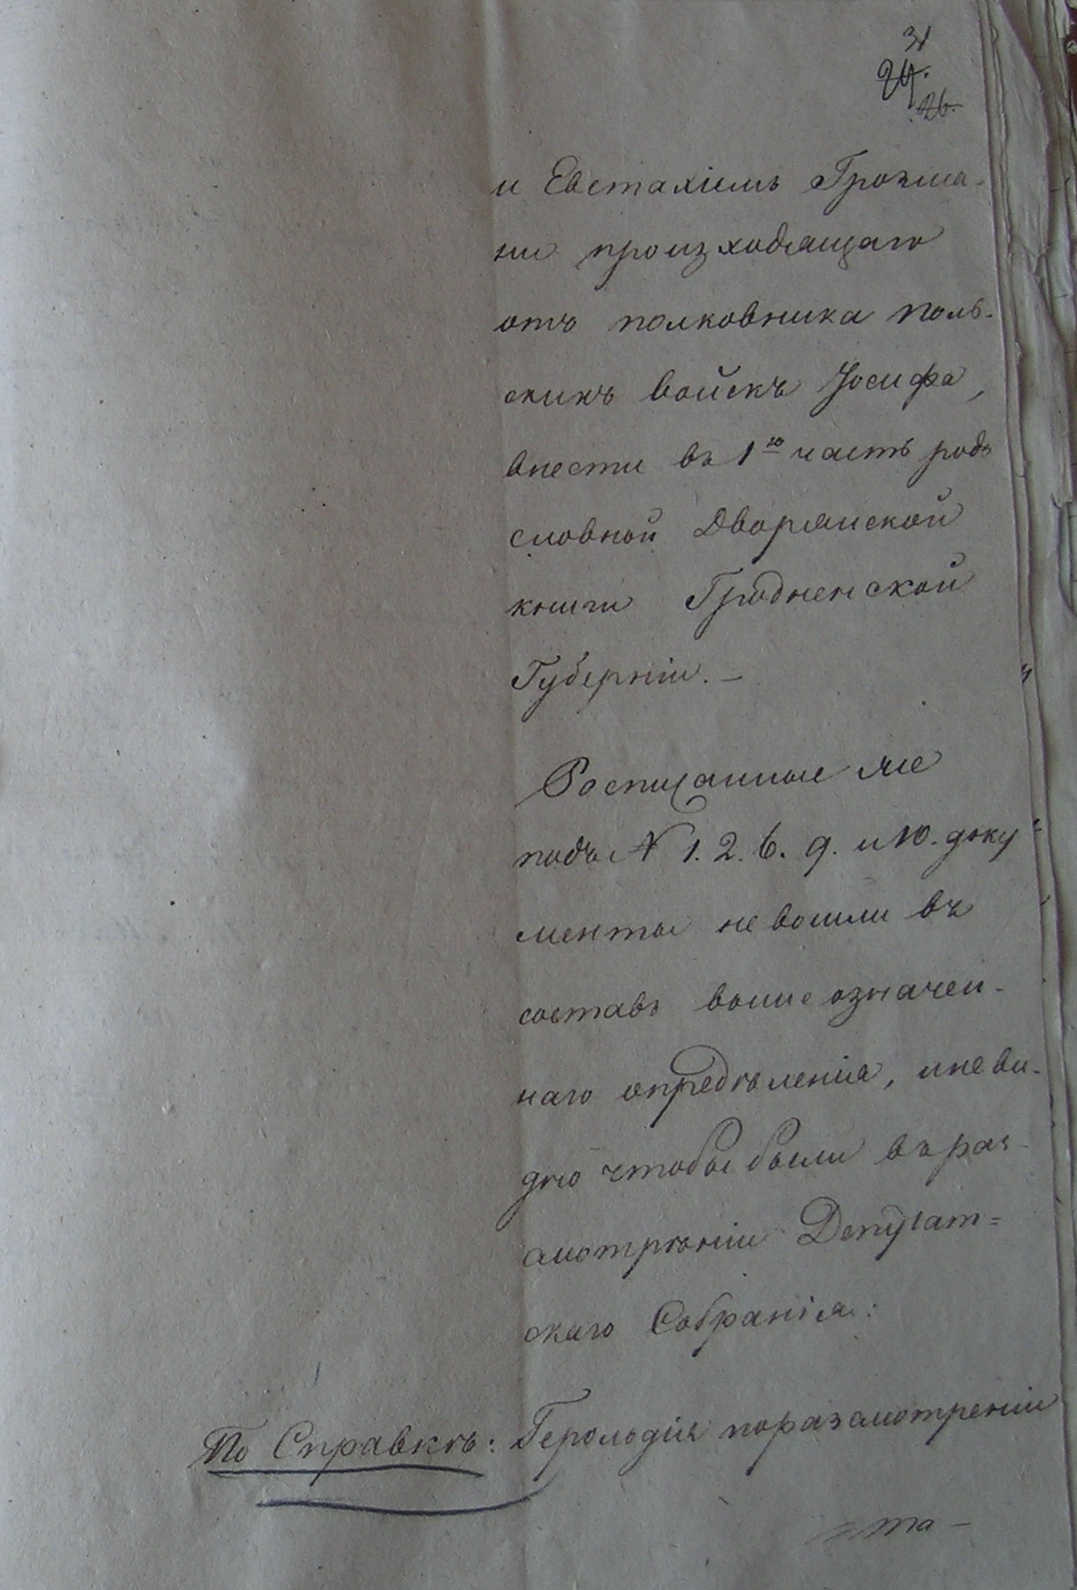 31
24.
26.
и Евстахiемъ Грозма-
ни произходящаго
отъ полковника поль-
скихъ войскъ Iосифа,
внести въ 1ю часть родо
словной Дворянской
книги Гродненской
Губернiи. —
Росписанные же
подъ № 1. 2. 6. 9. и 10. доку=
менты не вошли въ
составъ вышеозначен-
наго опредѣленiя, и не ви-
дно чтобы были въ раз-
смотрѣнiи Депутат=
скаго Собранiя:
По Справкѣ: Герольдiя по разсмотренiи
та —